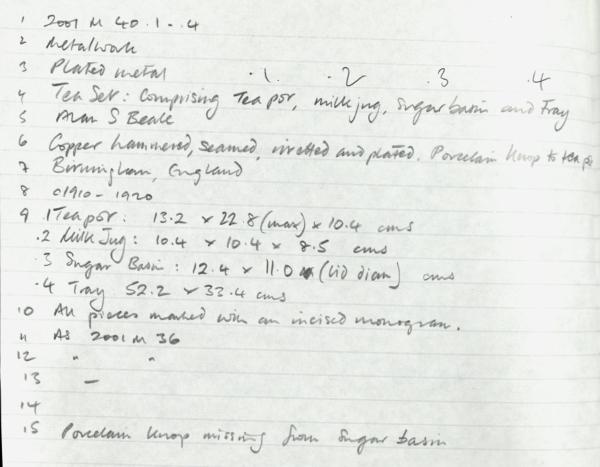 1 2001 M 40 .1 - .4
2 Metalwork
3 Plated metal .1 .2 .3 .4
4 Tea Set: Comprising Teapot, milk jug, Sugar basin and Tray
5 Alan S Beale
6 Copper hammered, seamed, rivetted and plated. Porcelain knop to teapot
7 Birmingham, England
8 c1910 - 1920
9 .1 Teapot: 13.2 x 22.8 (max) x 10.4 cms
.2 Milk Jug: 10.4 x 10.4 x 8.5 cms
.3 Sugar Basin: 12.4 x 11.0 (lid diam) cms
.4 Tray 52.2 x 33.4 cms
10 All pieces marked with an incised monogram.
11 As 2001 M 36
12 " "
13 —
14
15 Porcelain knop missing from Sugar basin